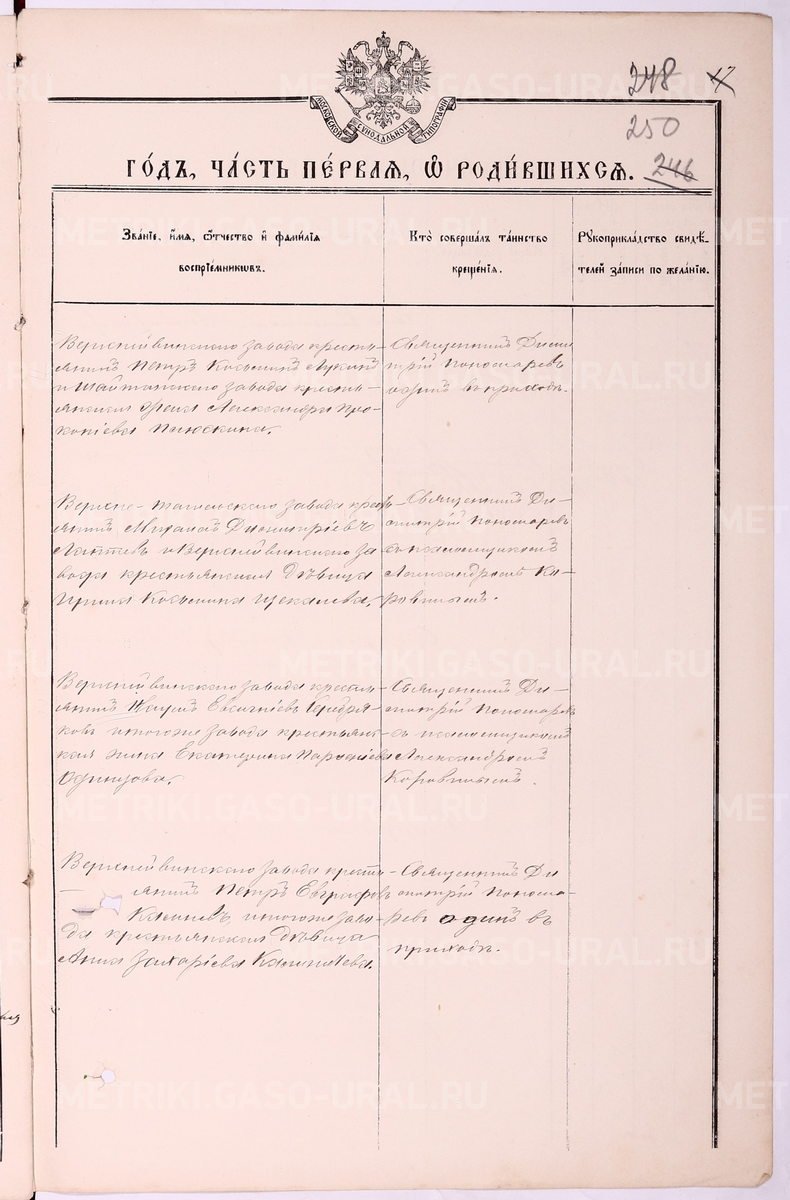 248
17
250
246
МОСКОВСКОЙ СѴНОДАЛЬНОЙ ТИПОГРАФІИ
ГО́ДЪ, ЧА́СТЬ ПЕ́РВАЯ, Ѡ҆ РОДИ́ВШИХСЯ.
Зва́нїе, и҆́мя, ѻ҆́тчество и҆ фами́лїя
воспрїе́мникѡвъ.
Кто̀ соверша́лъ та́инство
креще́нїя.
Рꙋкоприкла́дство свидѣ́-
телей за́писи по жела́нїю.
Верхнейвинского завода кресть-
янинъ Петръ Косьминъ Лукинъ
и Шайтанского завода кресть-
янская Александра Про-
копіева
Священникъ Дими
трій Пономаревъ
одинъ въ приходѣ.
Верхне-тагильского завода крест
янинъ Михаилъ Димитріевъ
Лаптевъ и Верхнейвинского за
вода крестьянская дѣвица
Ирина Косьмина Щекалева.
Священникъ Ди-
митрій Пономаревъ
съ псаломщикомъ
Александромъ Ко-
ровинымъ.
Верхнейвинского завода кресть-
янинъ Евсигніевъ
ковъ и тогоже завода крестьянс-
кая жена Екатерина
Одинцова.
Священникъ Ди-
митрій Пономарев
съ псаломщикомъ
Александромъ
Коровинымъ.
Верхнейвинского завода кресть-
янинъ Петръ Евграфовъ
и тогоже заво-
да крестьянская дѣвица
Анна Захаріева
Священникъ Ди
митрій Понома-
ревъ одинъ въ
приходѣ.
METRIKI.GASO-URAL.RU